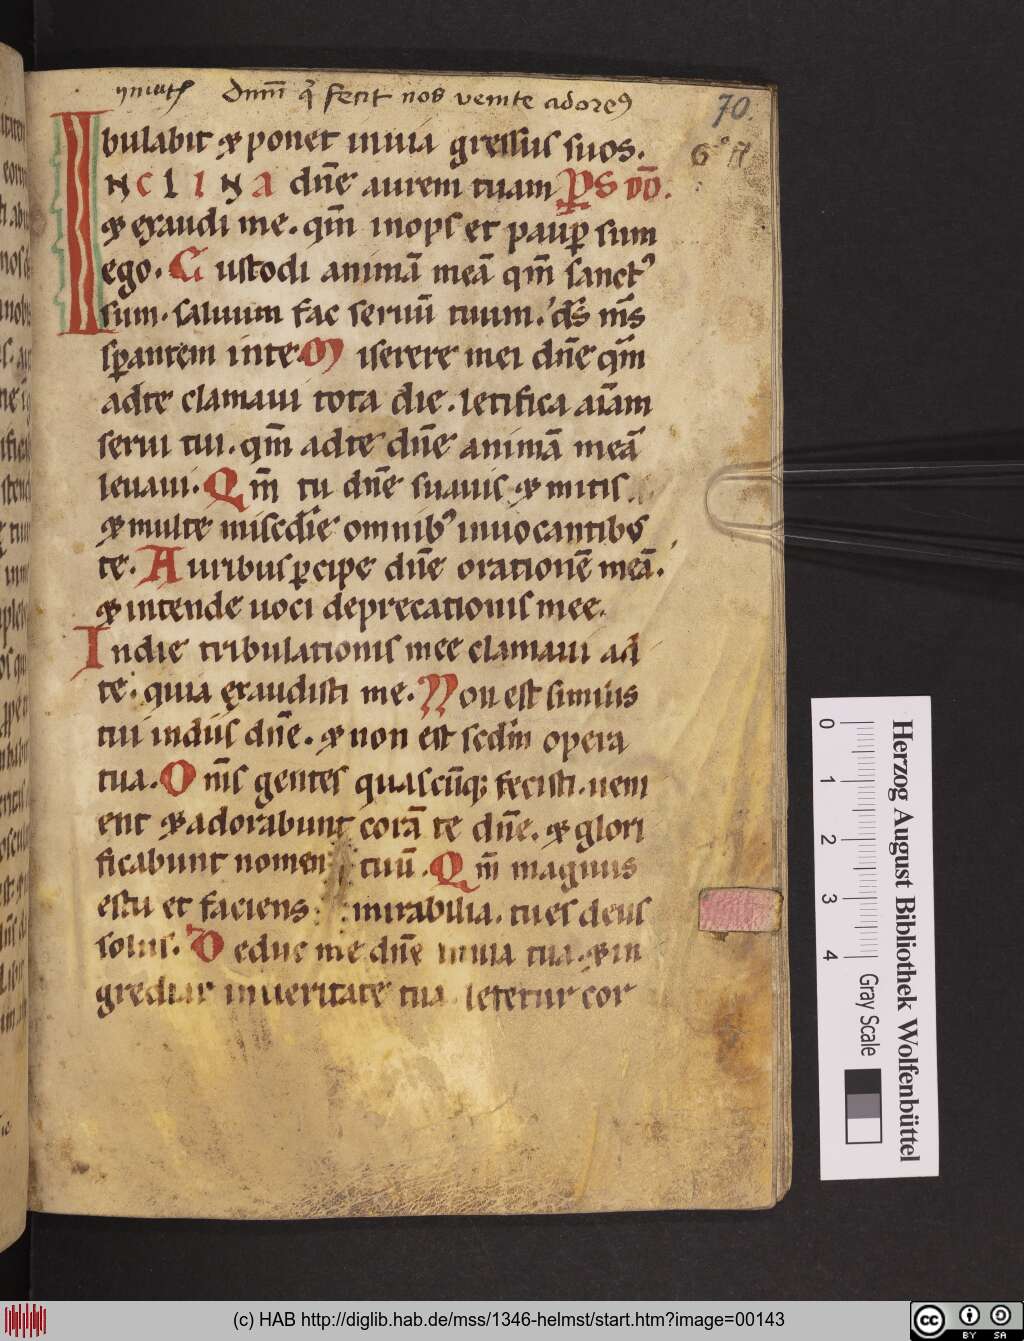 dnm̄ q̄ fecit nos venite adoreꝰ
70.
6ª
bulabit ⁊ ponet in uia gressus suos.
INCLINA dn̄e aurem tuam PS DD̄.
⁊ exaudi me. qm̄ inops et paup̲ sum
ego. Custodi animā meā qm̄ sanctꝰ
sum. saluum fac seruū tuum. ds̄ ms̄
sꝑantem in te. Miserere mei dn̄e qm̄
ad te clamaui tota die. letifica aīam
serui tui. qm̄ ad te dn̄e animā meā
leuaui. Qm̄ tu dn̄e suauis ⁊ mitis.
⁊ multe misedīe omnibꝰ inuocantibus
te. Auribus ꝑcipe dn̄e orationē meā.
⁊ intende uoci deprecationis mee.
In die tribulationis mee clamaui ad
te. quia exaudisti me. Non est similis
tui in diis dn̄e. ⁊ non est scdm̄ opera
tua. Oms̄ gentes quascūq; fecisti. ueni
ent ⁊ adorabunt corā te dn̄e. ⁊ glori
ficabunt nomen tuū. Qm̄ magnus
es tu et faciens mirabilia. tu es deus
solus. Deduc me dn̄e in uia tua. ⁊ in
grediar in ueritate tua letetur cor
Herzog August Bibliothek Wolfenbüttel
0 1 2 3 4
Gray Scale
(c) HAB http://diglib.hab.de/mss/1346-helmst/start.htm?image=00143
cc BY SA